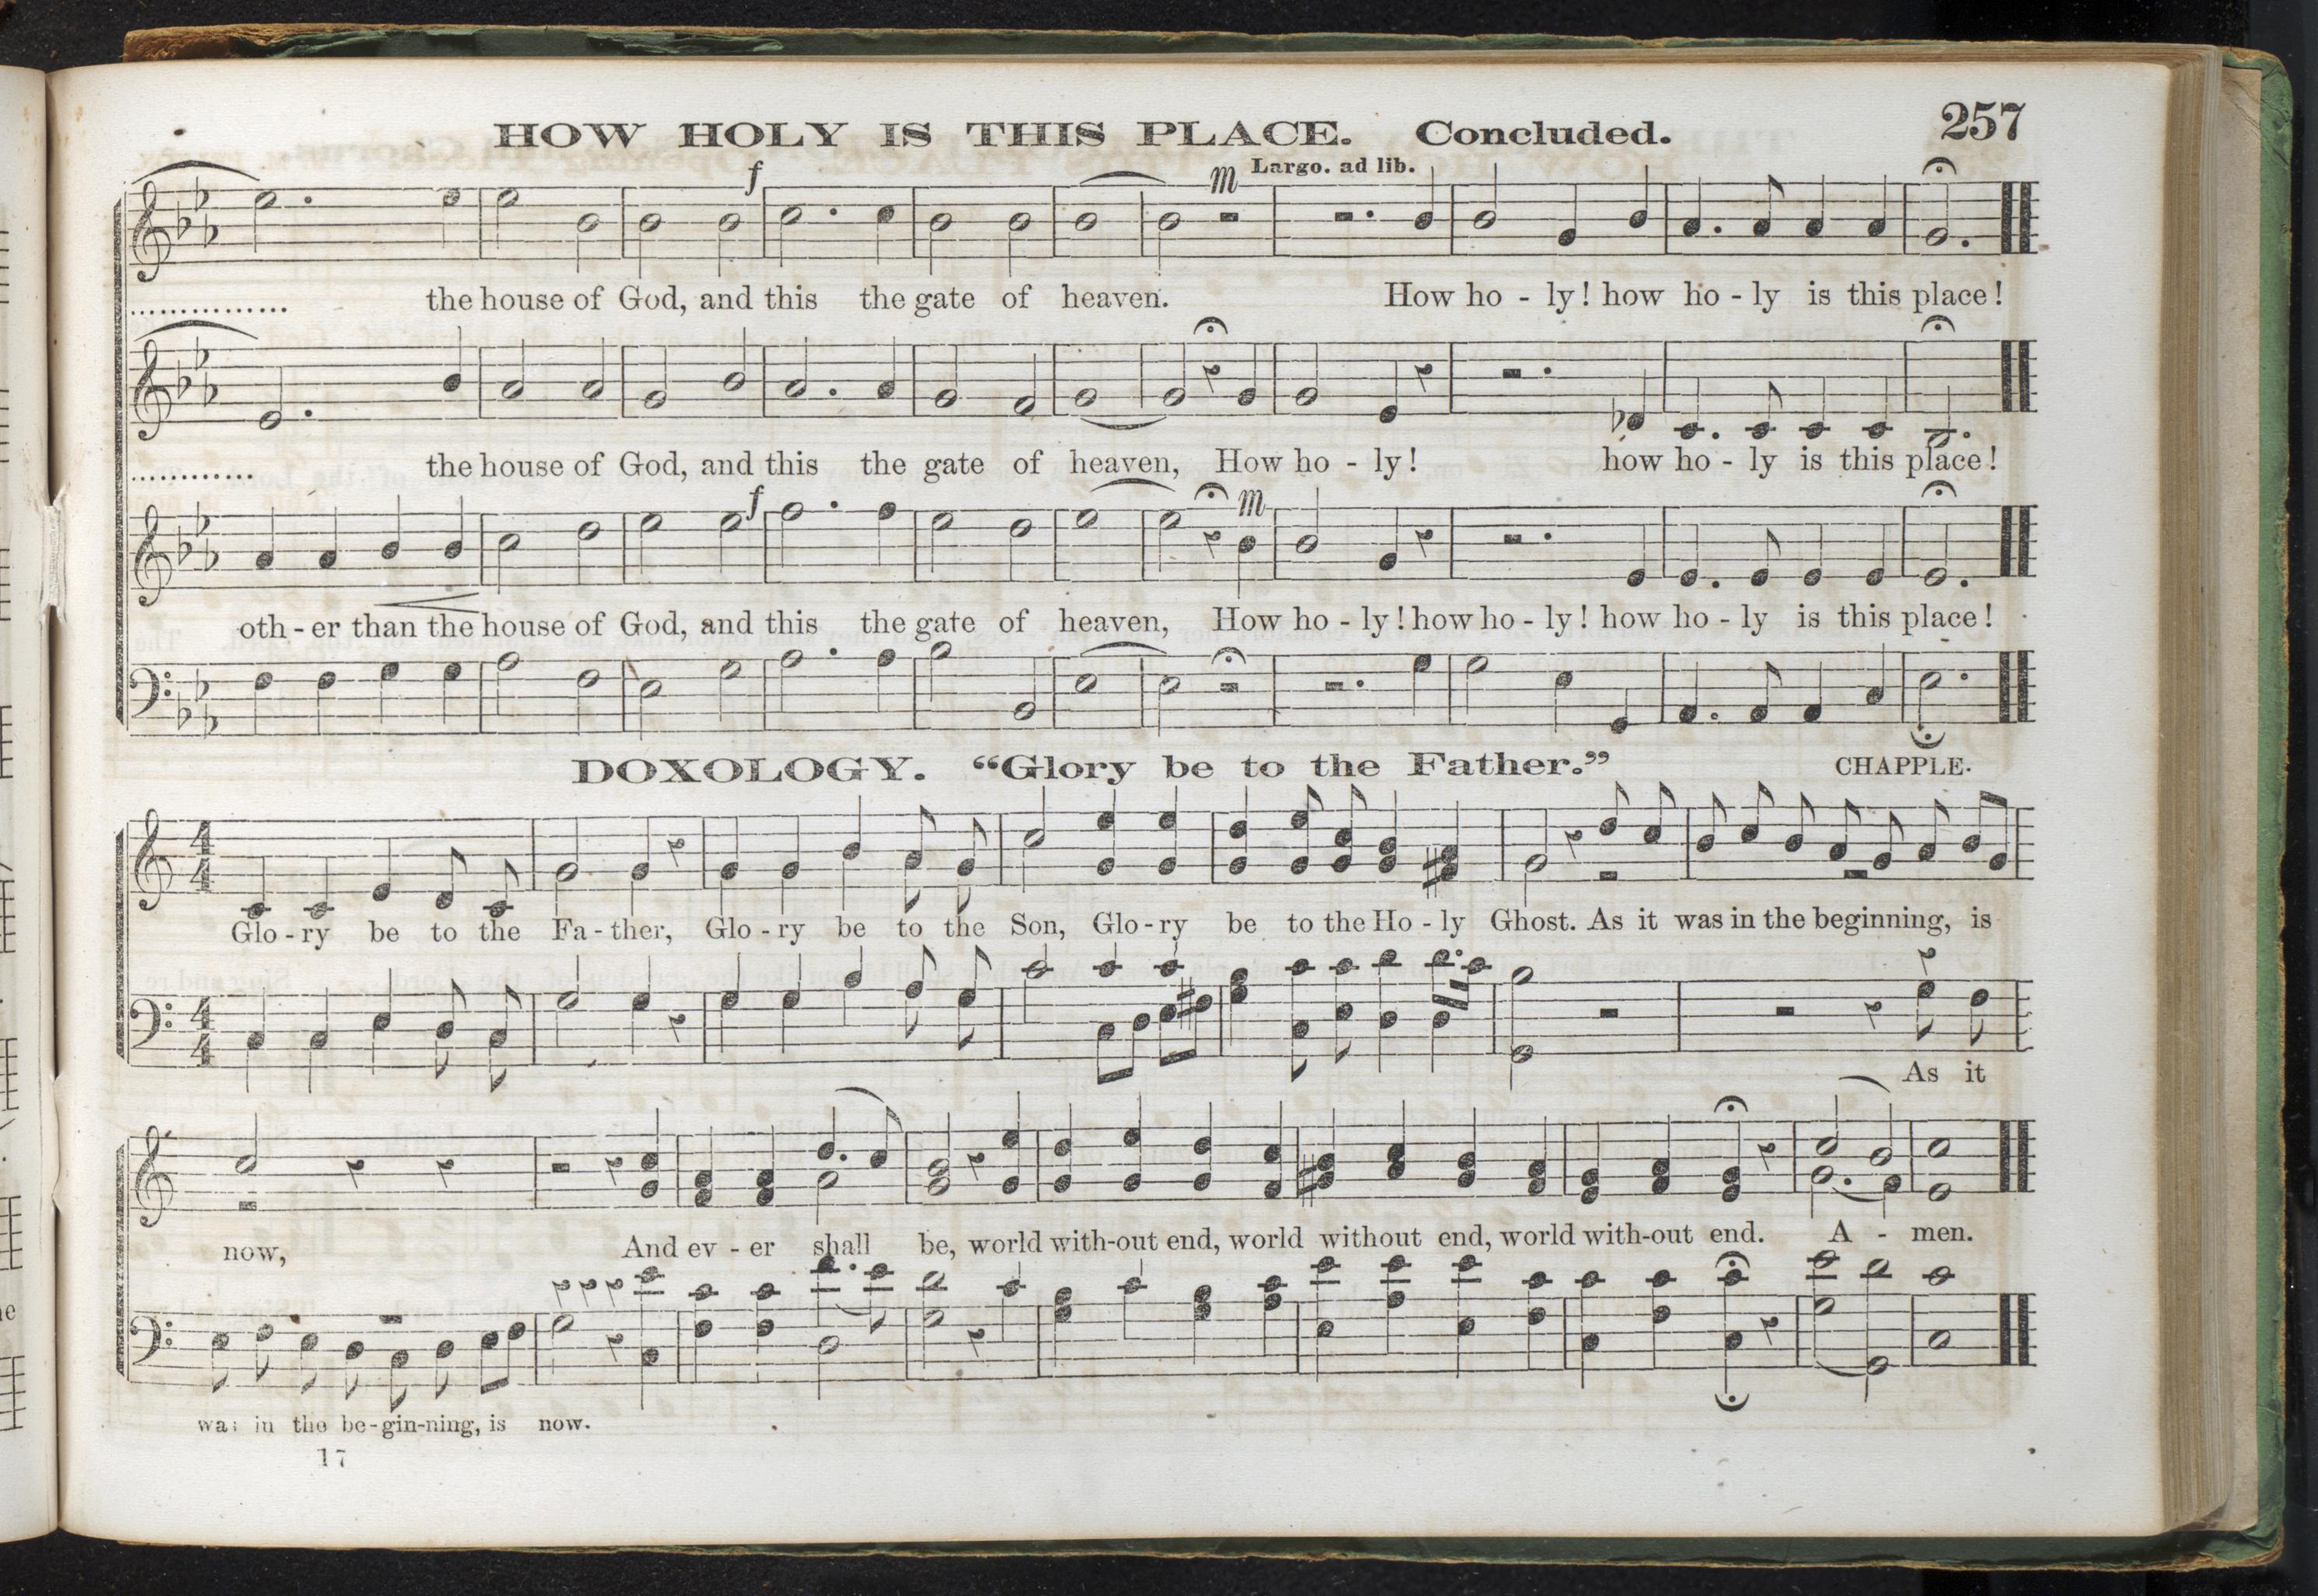 HOW HOLY IS THIS PLACE. Concluded. 257
f m Largo. ad lib.
............... the house of God, and this the gate of heaven. How ho - ly! how ho - ly is this place!
............ the house of God, and this the gate of heaven, How ho - ly! how ho - ly is this place!
f m
oth - er than the house of God, and this the gate of heaven, How ho - ly! how ho - ly! how ho - ly is this place!
DOXOLOGY. “Glory be to the Father.” CHAPPLE.
4 4
Glo - ry be to the Fa - ther, Glo - ry be to the Son, Glo - ry be to the Ho - ly Ghost. As it was in the beginning, is
4 4
As it
now, And ev - er shall be, world with-out end, world without end, world with-out end. A - men.
was in the be - gin-ning, is now.
17